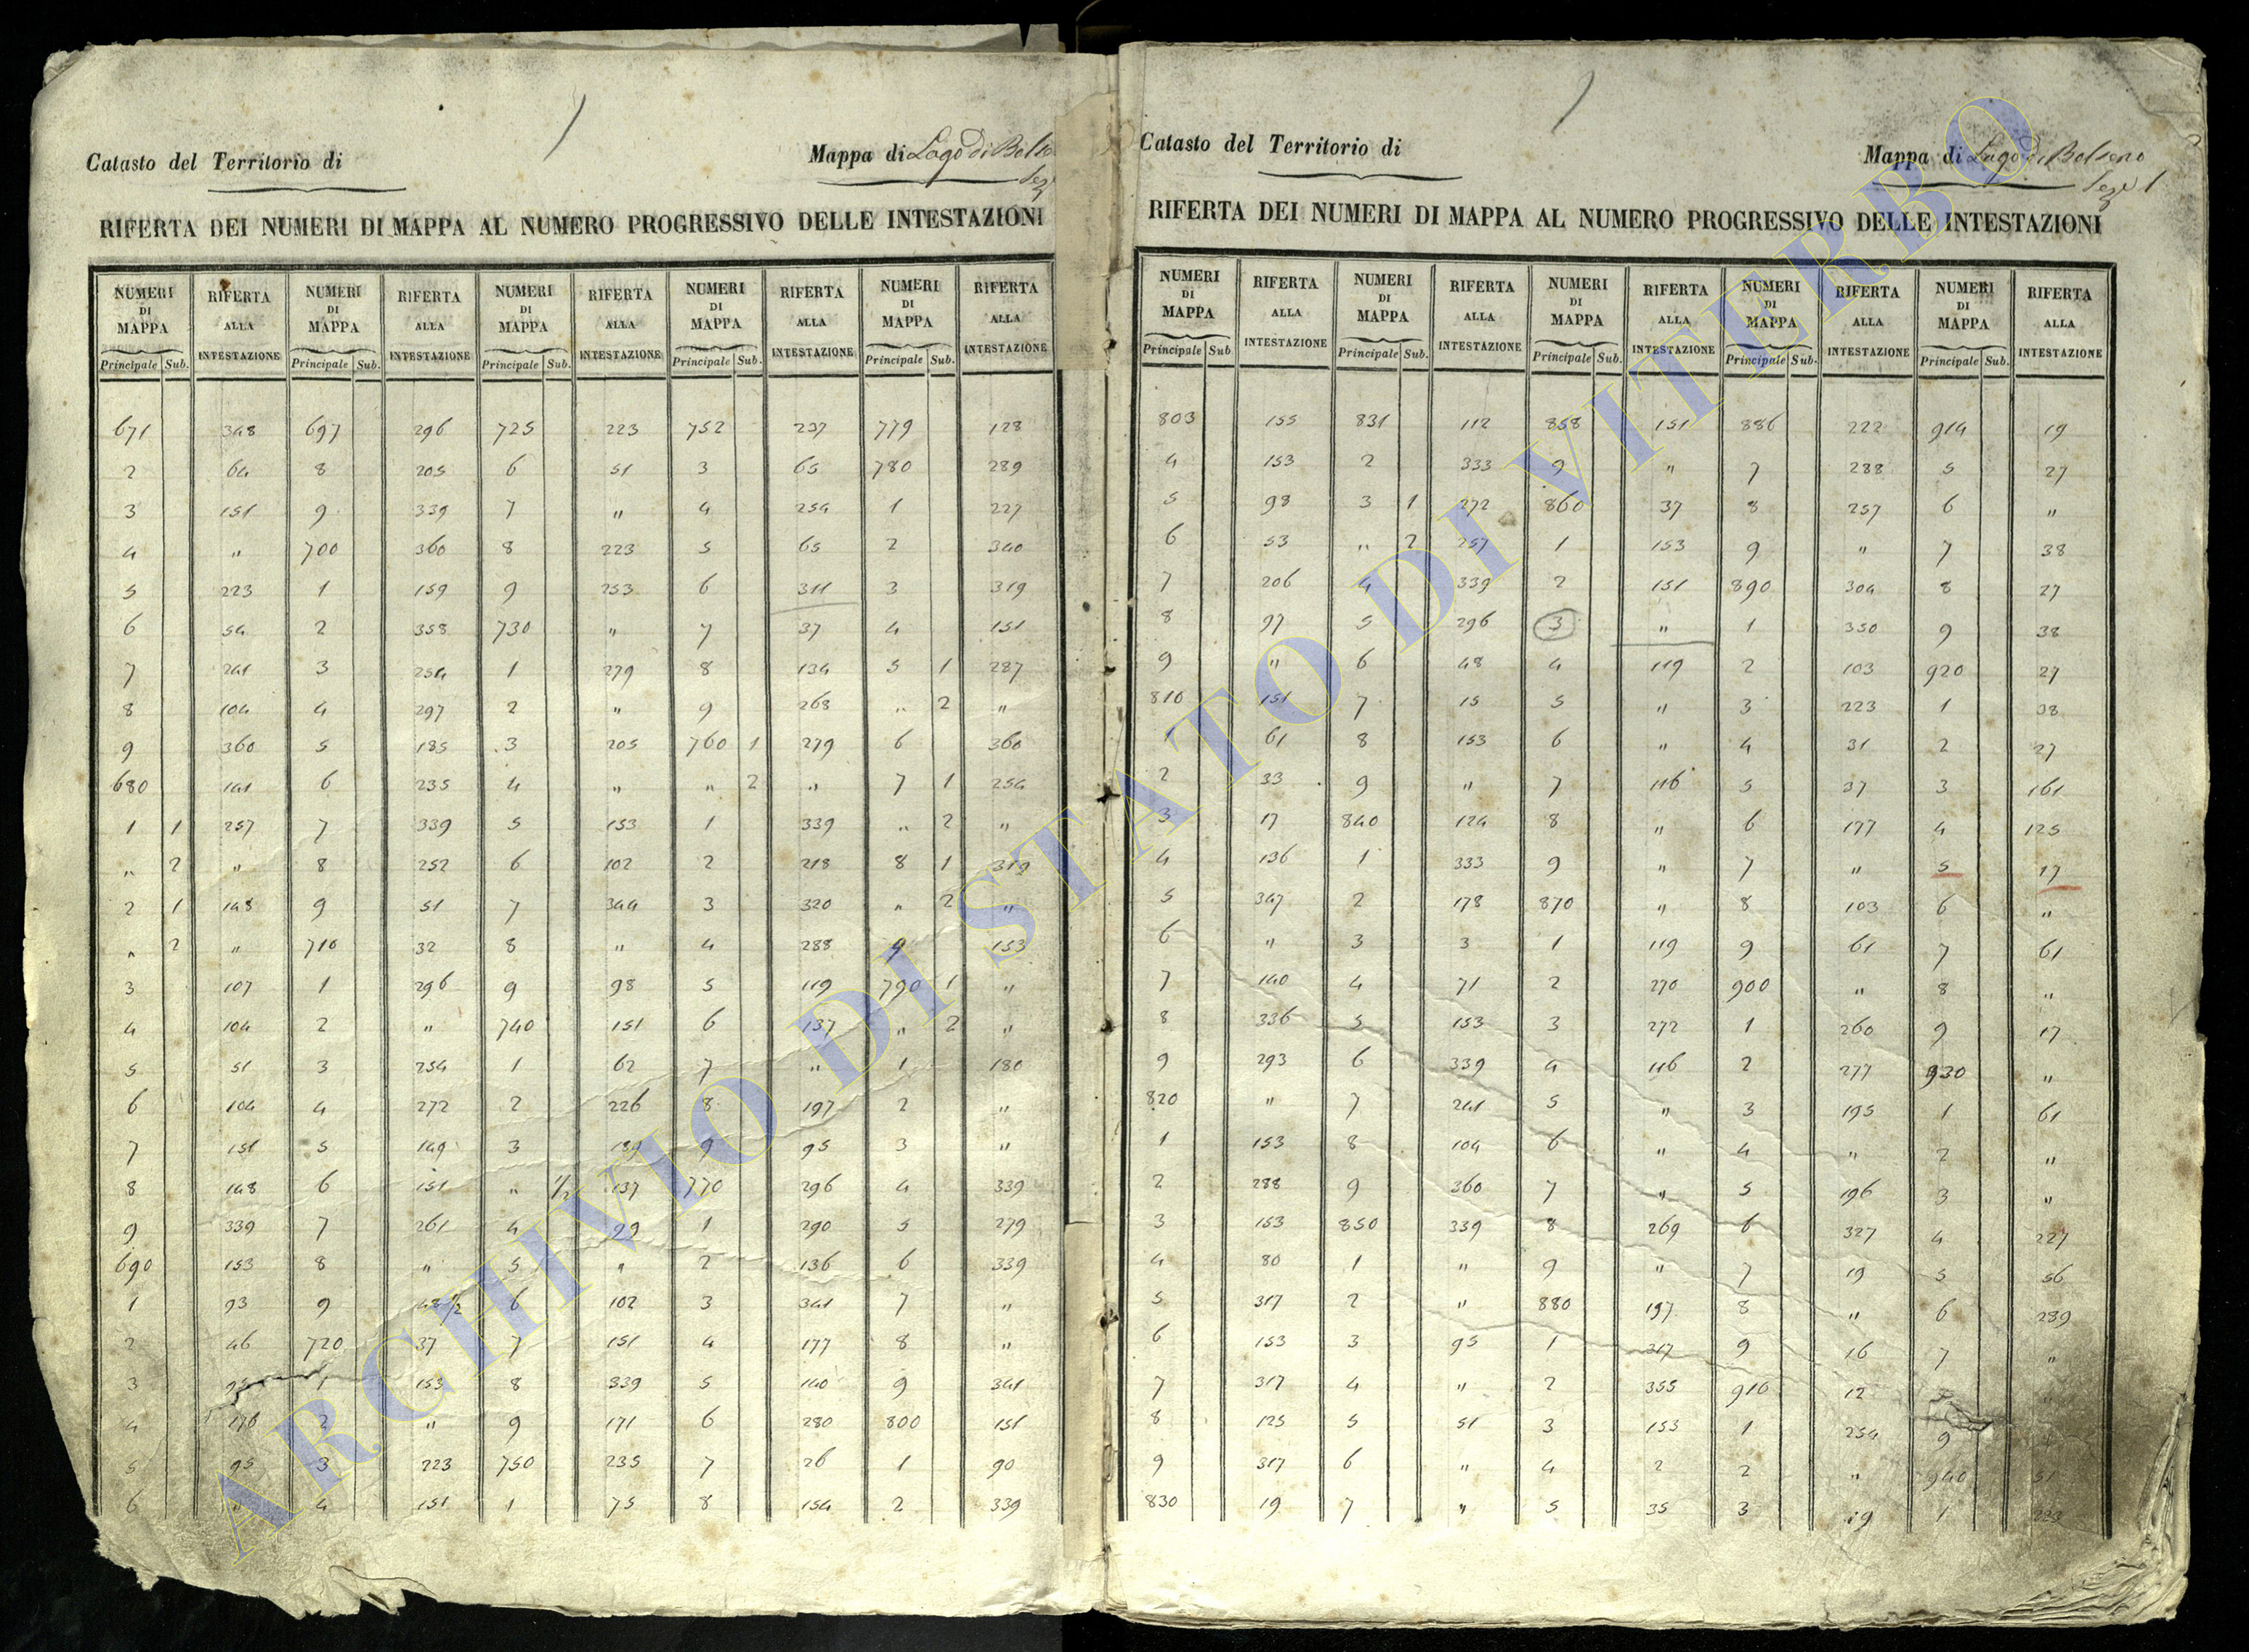 Catasto del Territorio di
Mappa di Lago di Bolse
Sez
RIFERTA DEI NUMERI DI MAPPA AL NUMERO PROGRESSIVO DELLE INTESTAZIONI
NUMERI DI MAPPA RIFERTA ALLA INTESTAZIONE NUMERI DI MAPPA RIFERTA ALLA INTESTAZIONE NUMERI DI MAPPA RIFERTA ALLA INTESTAZIONE NUMERI DI MAPPA RIFERTA ALLA INTESTAZIONE NUMERI DI MAPPA RIFERTA ALLA INTESTAZIONE
Principale Sub. Principale Sub. Principale Sub. Principale Sub. Principale Sub.
671 348 697 296 725 223 752 237 779 128
2 64 8 205 6 51 3 65 780 289
3 151 9 339 7 " 4 254 1 227
4 " 700 360 8 223 5 65 2 340
5 223 1 159 9 253 6 311 3 319
6 54 2 358 730 " 7 37 4 151
7 241 3 254 1 279 8 134 5 1 287
8 104 4 297 2 " 9 268 " 2 "
9 360 5 185 3 205 760 1 279 6 360
680 141 6 235 4 " " 2 " 7 1 254
1 1 257 7 339 5 153 1 339 " 2 "
" 2 " 8 252 6 102 2 218 8 1 319
2 1 148 9 51 7 344 3 320 " 2 "
" 2 " 710 32 8 " 4 288 9 153
3 107 1 296 9 98 5 119 790 1 "
4 104 2 " 740 151 6 137 " 2 "
5 51 3 254 1 62 7 " 1 180
6 104 4 272 2 226 8 197 2 "
7 151 5 149 3 189 9 95 3 "
8 148 6 151 " 1/2 137 770 296 4 339
9 339 7 261 4 99 1 290 5 279
690 153 8 " 5 " 2 136 6 339
1 93 9 48 1/2 6 102 3 341 7 "
2 46 720 37 7 151 4 177 8 "
3 1 153 8 339 5 140 9 341
4 176 2 " 9 171 6 280 800 151
5 95 3 223 750 235 7 26 1 90
6 " 4 151 1 75 8 154 2 339
Catasto del Territorio di
Mappa di Lago di Bolseno
Seze 1
RIFERTA DEI NUMERI DI MAPPA AL NUMERO PROGRESSIVO DELLE INTESTAZIONI
NUMERI DI MAPPA RIFERTA ALLA INTESTAZIONE NUMERI DI MAPPA RIFERTA ALLA INTESTAZIONE NUMERI DI MAPPA RIFERTA ALLA INTESTAZIONE NUMERI DI MAPPA RIFERTA ALLA INTESTAZIONE NUMERI DI MAPPA RIFERTA ALLA INTESTAZIONE
Principale Sub Principale Sub. Principale Sub. Principale Sub. Principale Sub.
803 155 831 112 858 151 886 222 914 19
4 153 2 333 9 " 7 288 5 27
5 98 3 1 272 860 37 8 257 6 "
6 53 " 2 257 1 153 9 " 7 38
7 206 4 339 2 151 890 304 8 27
8 97 5 296 3 " 1 350 9 38
9 " 6 48 4 119 2 103 920 27
810 151 7 15 5 " 3 223 1 38
1 61 8 153 6 " 4 31 2 27
2 33 9 " 7 116 5 37 3 161
3 17 840 124 8 " 6 177 4 125
4 136 1 333 9 " 7 " 5 17
5 347 2 178 870 " 8 103 6 "
6 " 3 3 1 119 9 61 7 61
7 140 4 71 2 270 900 " 8 "
8 336 5 153 3 272 1 260 9 17
9 293 6 339 4 116 2 277 930 "
820 " 7 241 5 " 3 195 1 61
1 153 8 104 6 " 4 " 2 "
2 288 9 360 7 " 5 196 3 "
3 153 850 339 8 269 6 327 4 227
4 80 1 " 9 " 7 19 5 56
5 317 2 " 880 197 8 " 6 289
6 153 3 95 1 317 9 16 7 "
7 317 4 " 2 355 910 12 "
8 125 5 51 3 153 1 254 9
9 317 6 " 4 2 2 " 940 51
830 19 7 " 5 35 3 19 1 223
ARCHIVIO DI STATO DI VITERBO